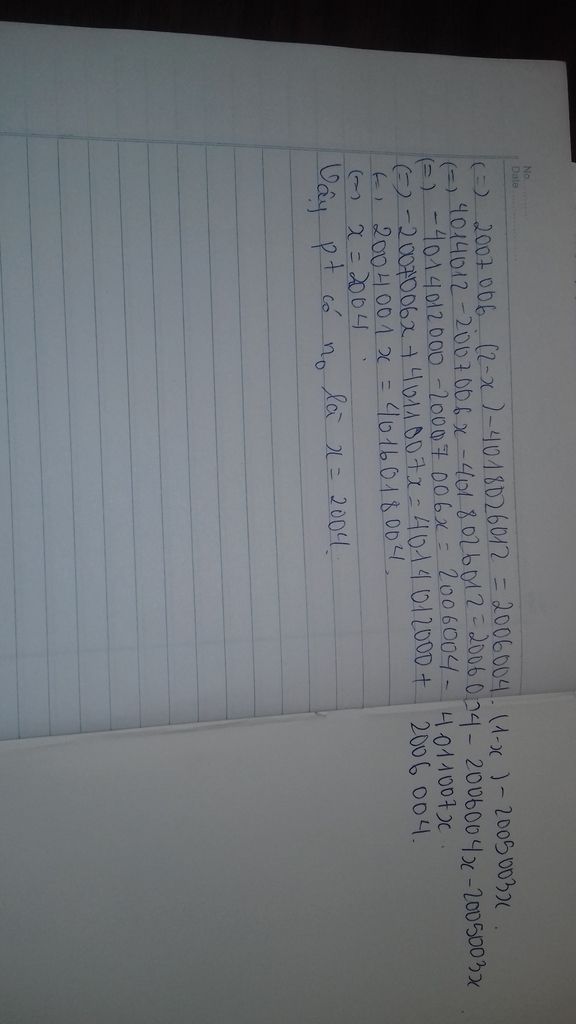 No.
Date
(=) 2007006 (2-x) - 4018026012 = 2006004. (1-x) - 2005003x.
(=) 4014012 - 2007006x - 4018026012 = 2006004 - 2006004x - 2005003x
(=) -4014012000 - 20007006x = 2006004 - 4011007x.
(=) -2007006x + 4011007x = 4014012000 + 2006004.
(=) 2004001x = 4016018004.
(=) x = 2004.
Vậy pt có n₀ là x = 2004.